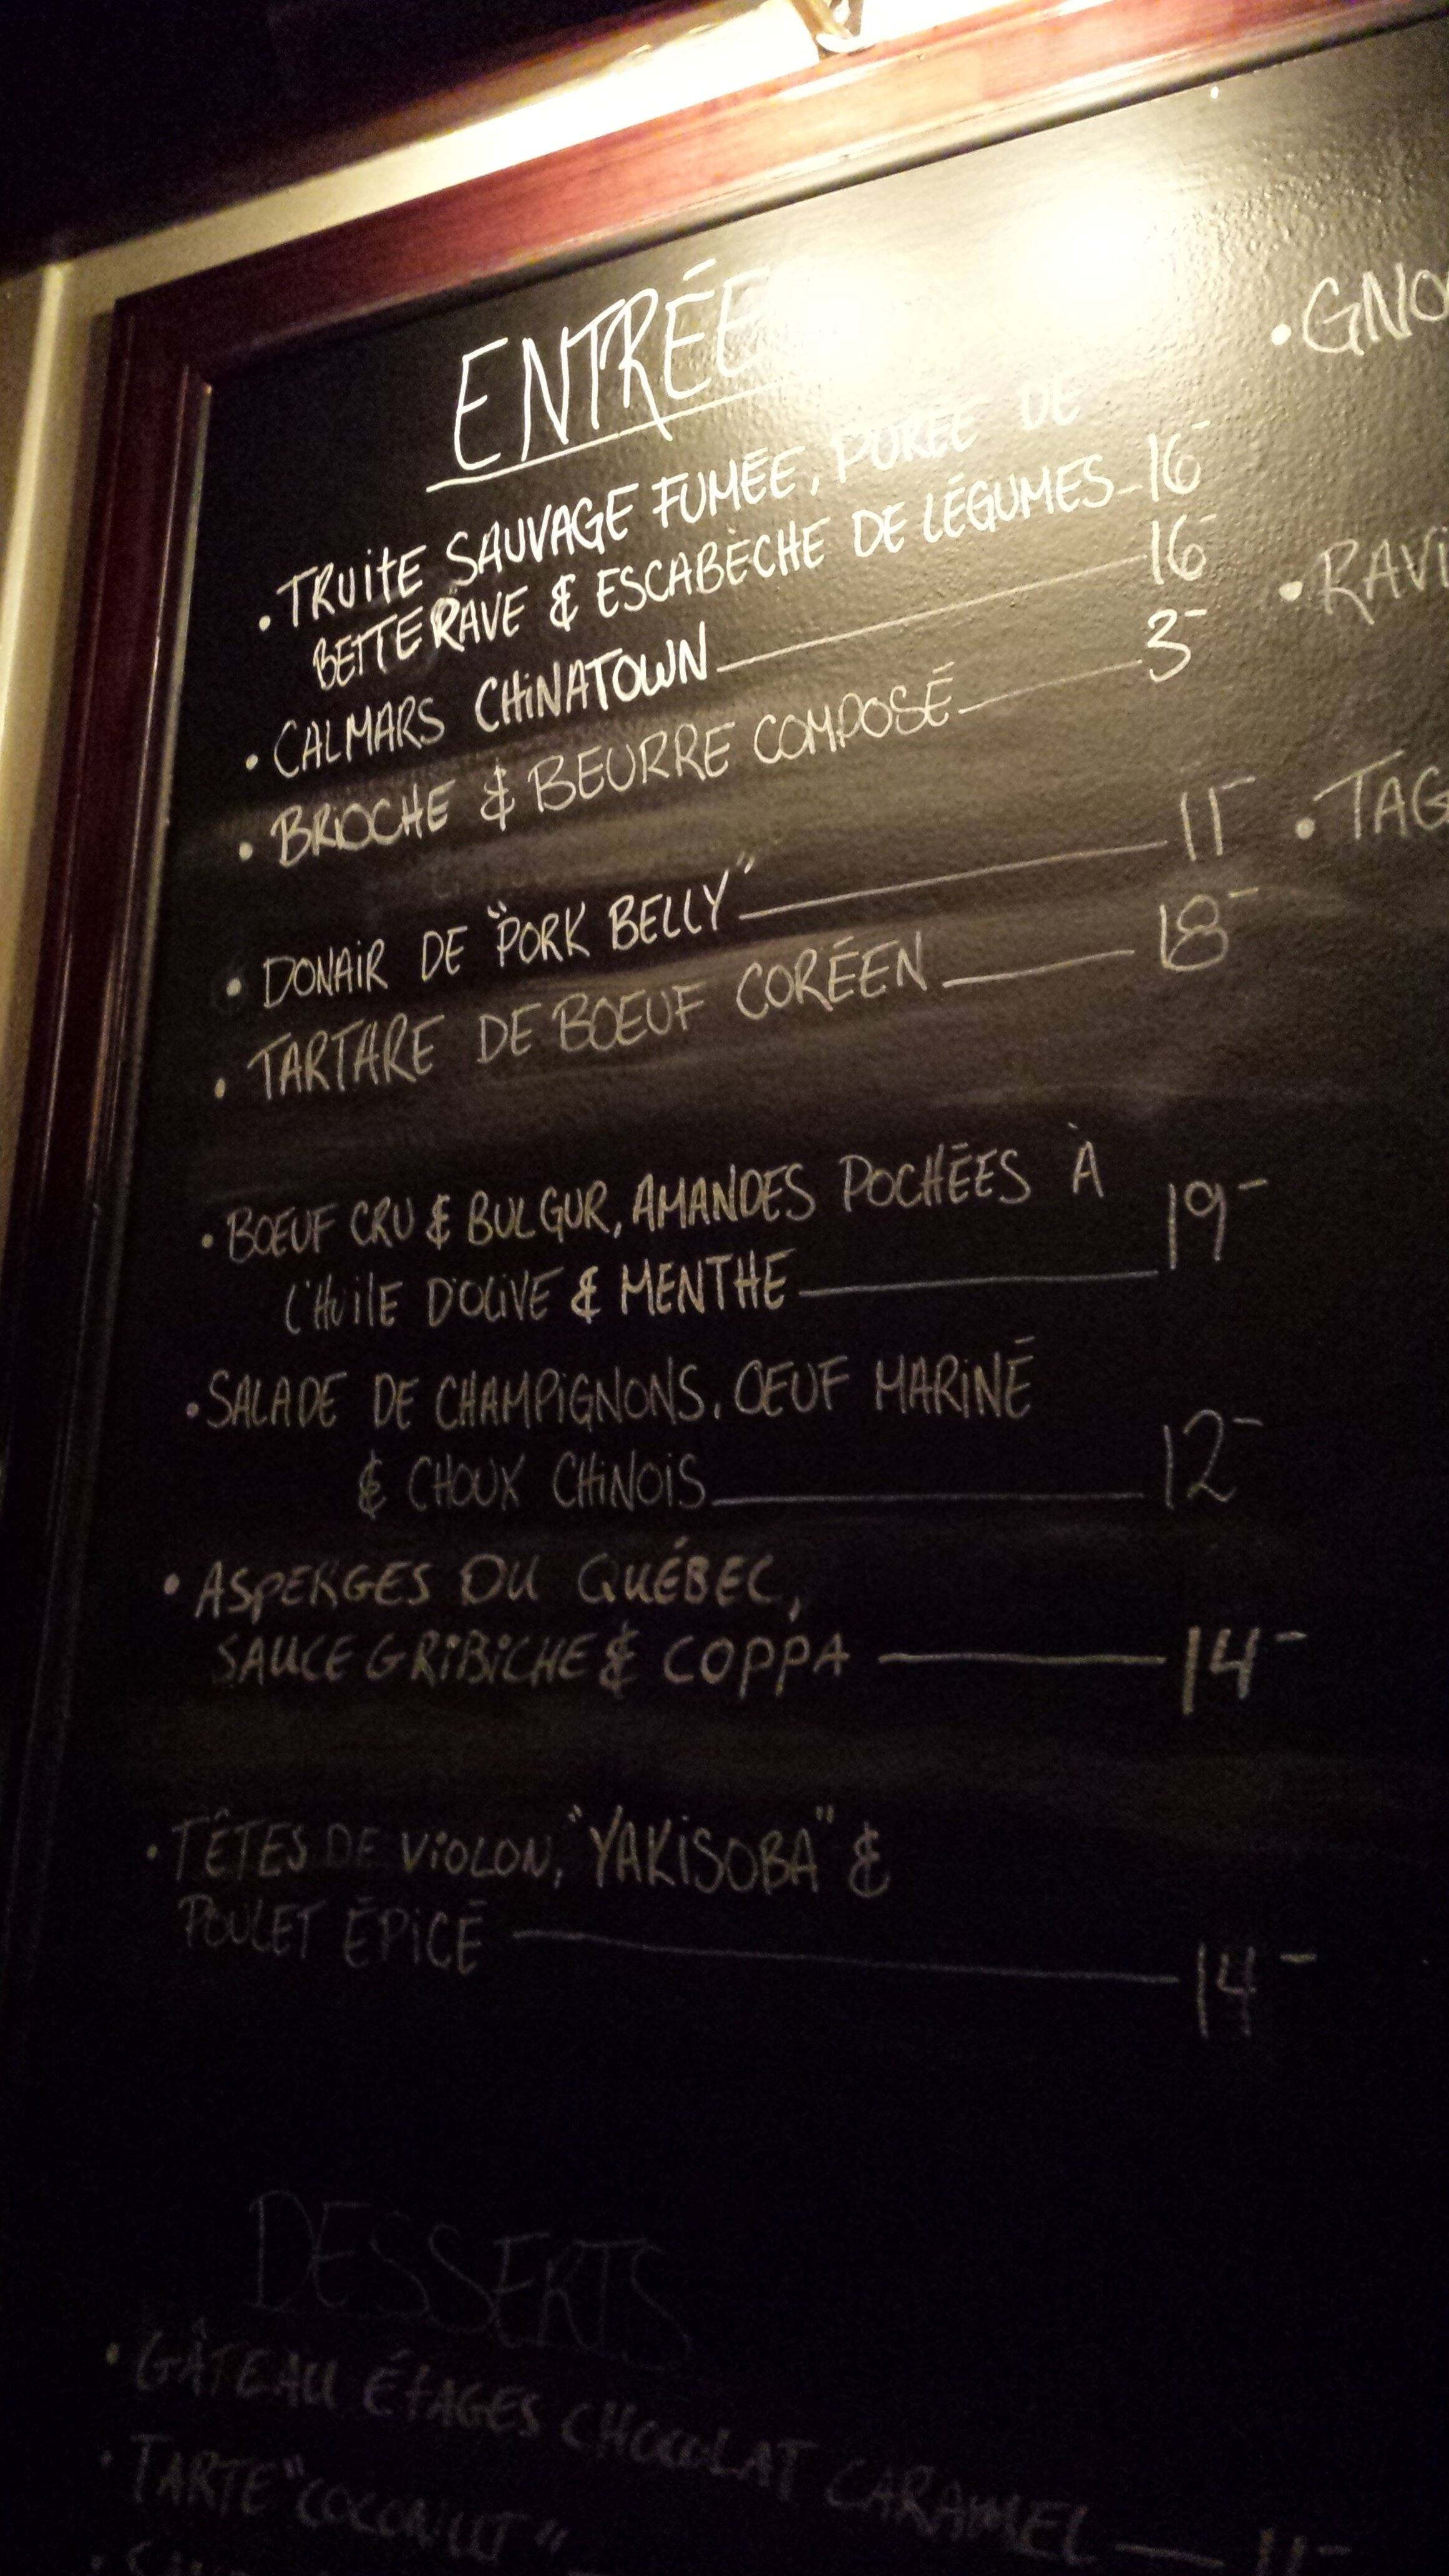 ENTRÉE
• TRUITE SAUVAGE FUMÉE, PURÉE DE
BETTERAVE & ESCABÈCHE DE LÉGUMES 16-
• CALMARS CHINATOWN 16-
• BRIOCHE & BEURRE COMPOSÉ 3-
• DONAIR DE "PORK BELLY" 11-
• TARTARE DE BOEUF CORÉEN 18-
• BOEUF CRU & BULGUR, AMANDES POCHÉES À
L'HUILE D'OLIVE & MENTHE 19-
• SALADE DE CHAMPIGNONS, OEUF MARINÉ
& CHOUX CHINOIS 12-
• ASPERGES DU QUÉBEC,
SAUCE GRIBICHE & COPPA 14-
• TÊTES DE VIOLON, "YAKISOBA" &
POULET ÉPICÉ 14-
DESSERTS
• GÂTEAU ÉTAGES CHOCOLAT CARAMEL 11-
• TARTE "COCONUT"
• GNO
• RAVI
• TAG